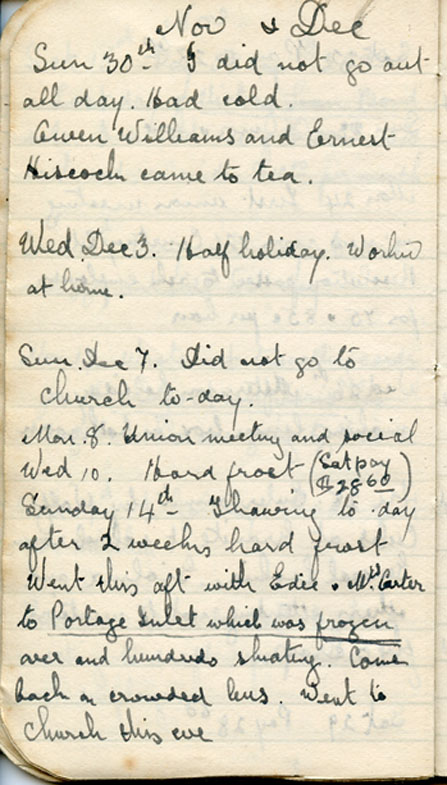 Nov & Dec
Sun 30th I did not go out
all day. Had cold.
Gwen Williams and Ernest
Hiscock came to tea.
Wed. Dec 3. Half holiday. Workin
at home.
Sun. Dec 7. Did not go to
church to-day.
Mon. 8. Union meeting and social
Wed 10. Hard frost (Sat pay
$28 60)
Sunday 14th Thawing to-day
after 2 weeks hard frost
Went this aft with Edie & Mrs Carter
to Portage Inlet which was frozen
over and hundreds skating. Come
back on crowded bus. Went to
Church this eve